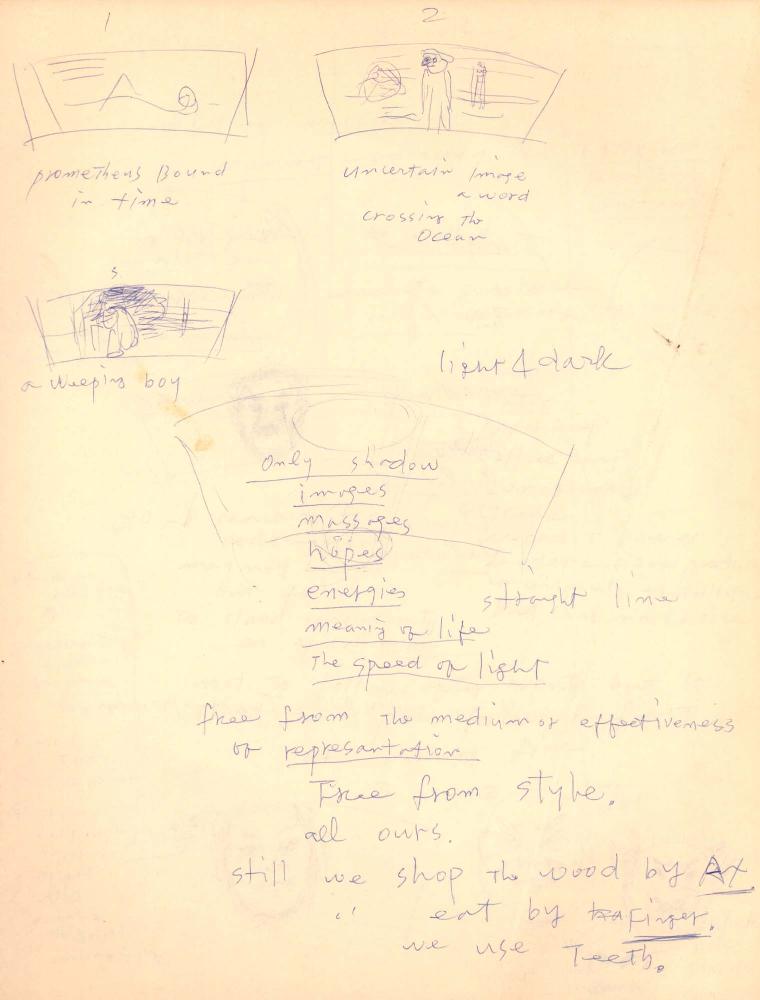 1
2
prometheus Bound
in time
uncertain image
a word
crossing the
ocean
a weeping boy
light & dark
only shadow
images
massages
hopes
energies
straight line
meanig of life
The speed of light
free from the medium or effectiveness
of represantation
Free from style.
all ours.
still we shop the wood by Ax.
" eat by Finger.
we use Teeth.